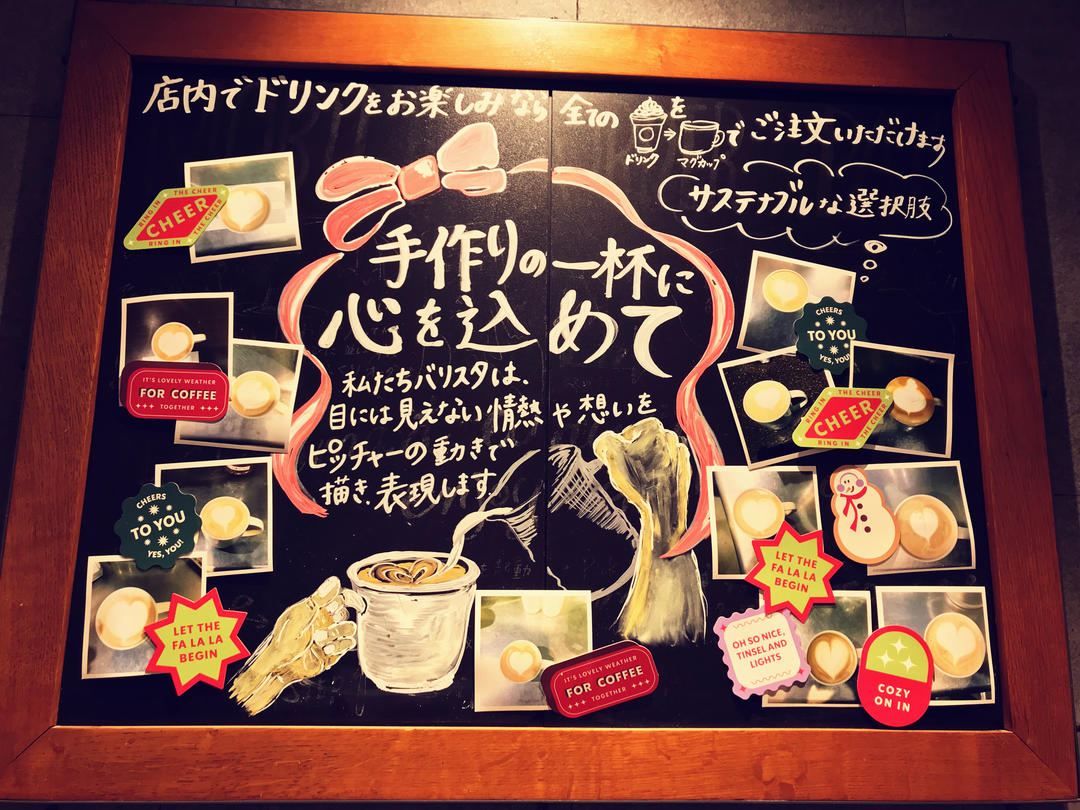 店内でドリンクをお楽しみなら 全ての
を
でご注文いただけます
ドリンク
マグカップ
サステナブルな選択肢
手作りの一杯に
心を込めて
私たちバリスタは、
目には見えない情熱や想いを
ピッチャーの動きで
描き、表現します。
THE CHEER
RING IN
CHEER
THE CHEER
RING IN
IT'S LOVELY WEATHER
FOR COFFEE
TOGETHER
CHEERS
TO YOU
YES, YOU!
LET THE
FA LA LA
BEGIN
CHEERS
TO YOU
YES, YOU!
THE CHEER
RING IN
CHEER
THE CHEER
RING IN
LET THE
FA LA LA
BEGIN
OH SO NICE,
TINSEL AND
LIGHTS
COZY
ON IN
IT'S LOVELY WEATHER
FOR COFFEE
TOGETHER